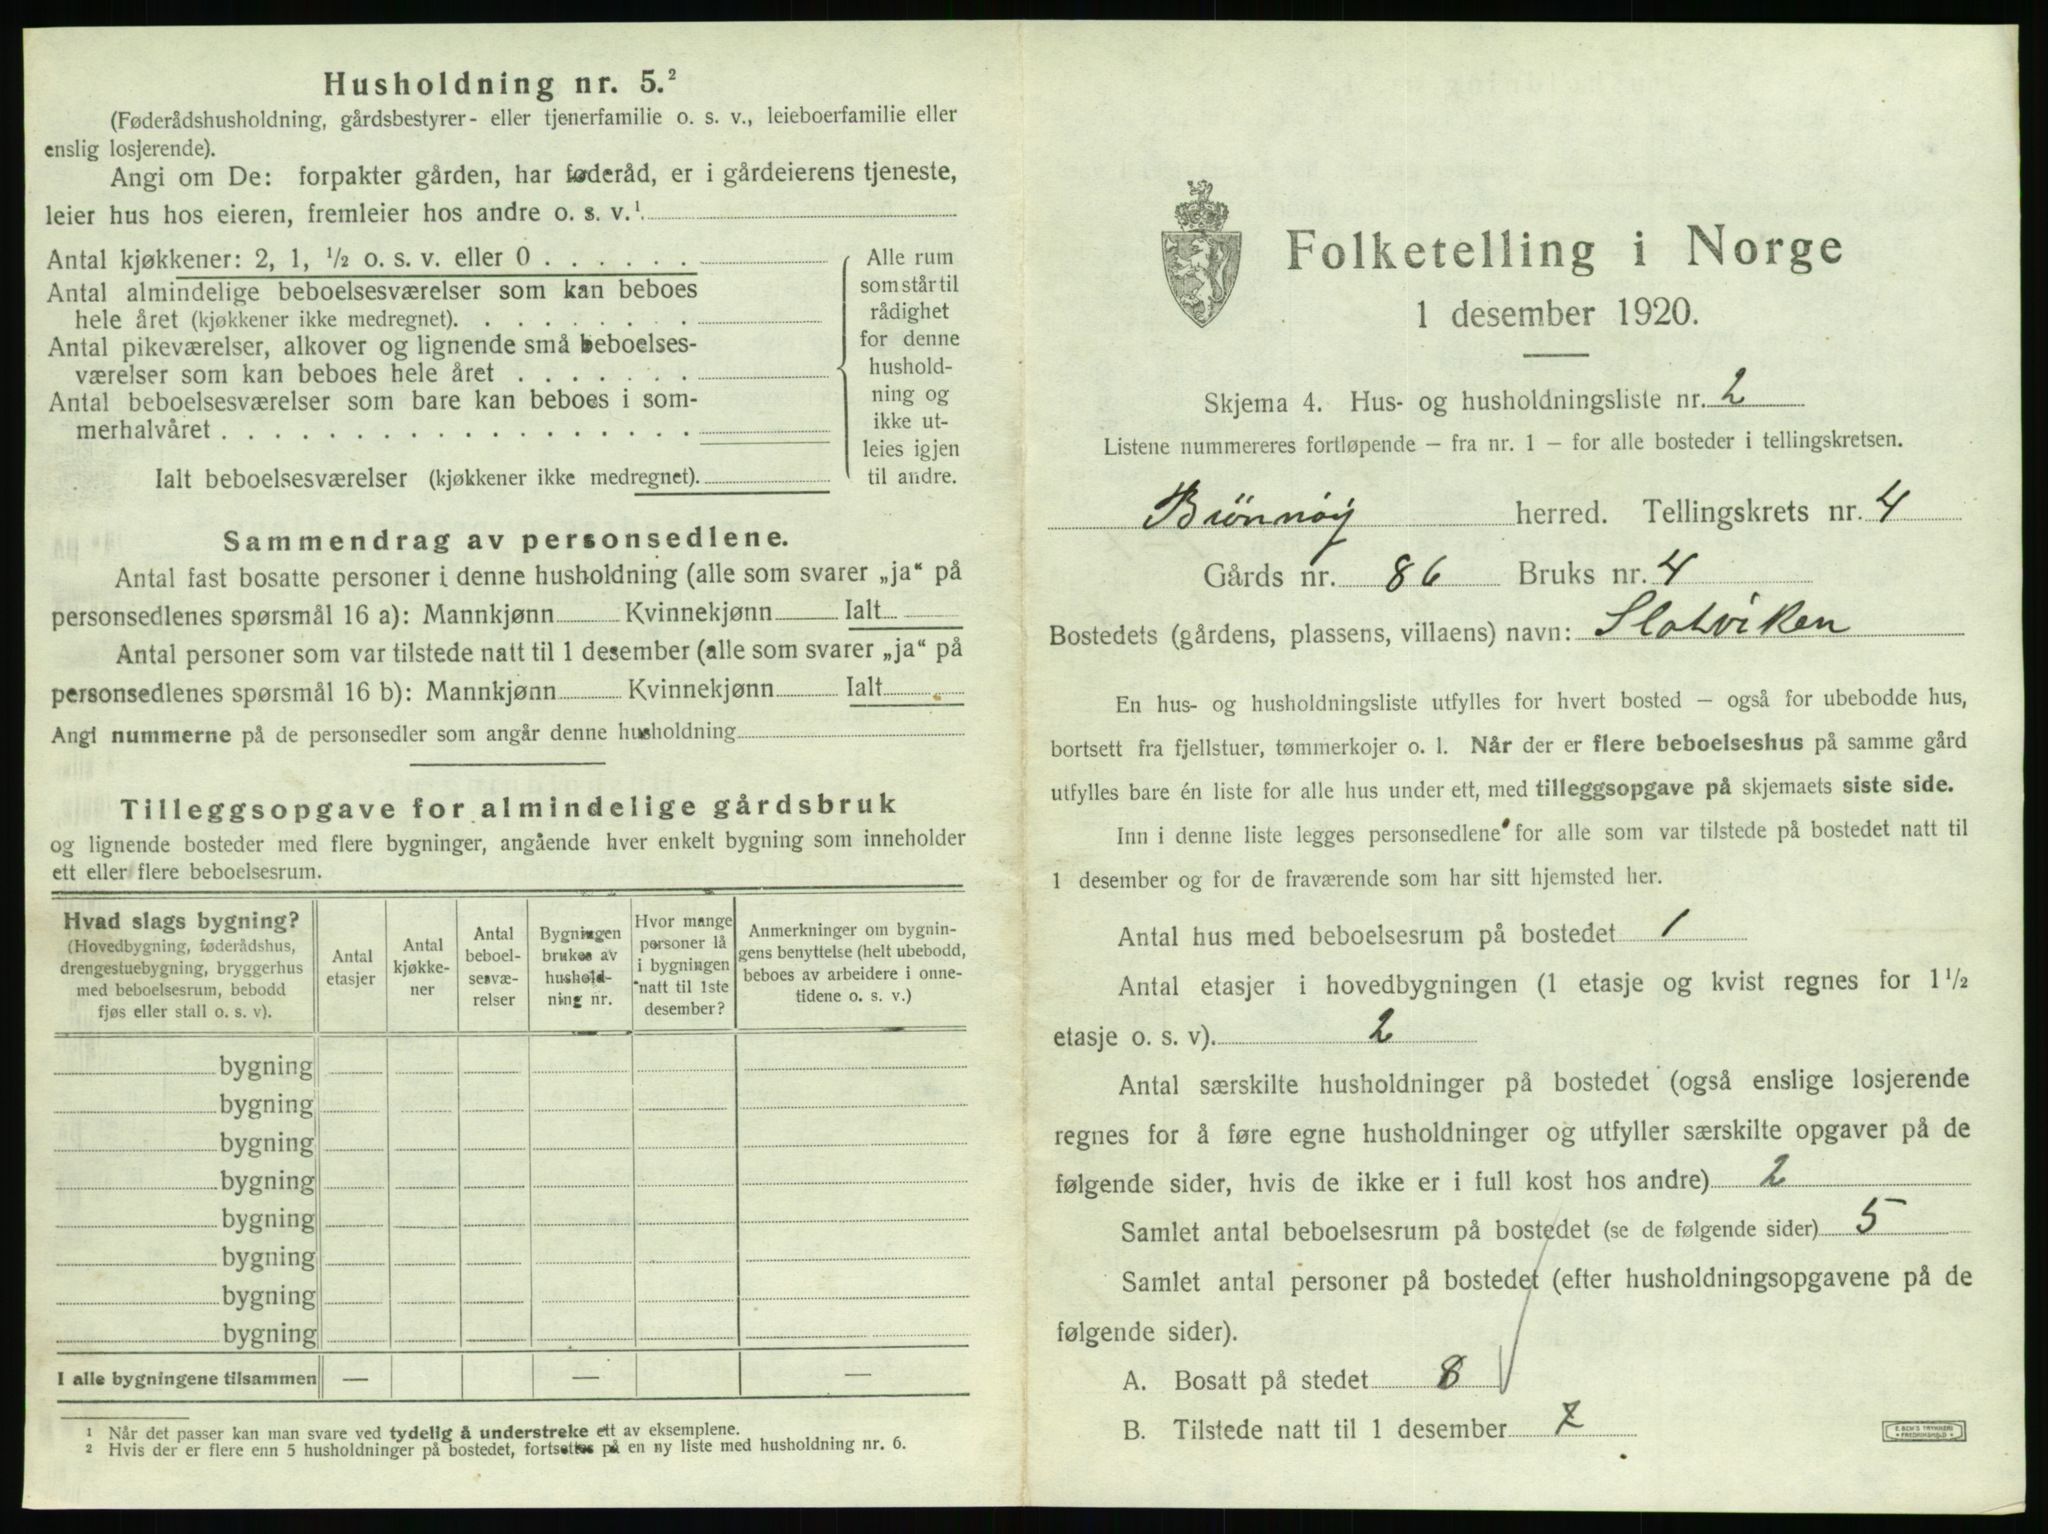 Husholdning nr. 5.²
(Føderådshusholdning, gårdsbestyrer- eller tjenerfamilie o. s. v., leieboerfamilie eller
enslig losjerende).
Angi om De: forpakter gården, har føderåd, er i gårdeierens tjeneste,
leier hus hos eieren, fremleier hos andre o. s. v.¹
Antal kjøkkener: 2, 1, ½ o. s. v. eller 0 . . . . . .
Antal almindelige beboelsesværelser som kan beboes
hele året (kjøkkener ikke medregnet). . . . . . . . .
Antal pikeværelser, alkover og lignende små beboelses-
værelser som kan beboes hele året . . . . . . .
Antal beboelsesværelser som bare kan beboes i som-
merhalvåret . . . . . . . . . . . . . . . . . .
Ialt beboelsesværelser (kjøkkener ikke medregnet).
Alle rum
som står til
rådighet
for denne
hushold-
ning og
ikke ut-
leies igjen
til andre.
Sammendrag av personsedlene.
Antal fast bosatte personer i denne husholdning (alle som svarer „ja“ på
personsedlenes spørsmål 16 a): Mannkjønn Kvinnekjønn Ialt
Antal personer som var tilstede natt til 1 desember (alle som svarer „ja“ på
personsedlenes spørsmål 16 b): Mannkjønn Kvinnekjønn Ialt
Angi nummerne på de personsedler som angår denne husholdning
Tilleggsopgave for almindelige gårdsbruk
og lignende bosteder med flere bygninger, angående hver enkelt bygning som inneholder
ett eller flere beboelsesrum.
Hvad slags bygning?
(Hovedbygning, føderådshus,
drengestuebygning, bryggerhus
med beboelsesrum, bebodd
fjøs eller stall o. s. v).
Antal
etasjer
Antal
kjøkke-
ner
Antal
beboel-
sesvæ-
relser
Bygningen
brukes av
hushold-
ning nr.
Hvor mange
personer lå
i bygningen
natt til 1ste
desember?
Anmerkninger om bygnin-
gens benyttelse (helt ubebodd,
beboes av arbeidere i onne-
tidene o. s. v.)
bygning
bygning
bygning
bygning
bygning
bygning
bygning
bygning
I alle bygningene tilsammen — — —
¹ Når det passer kan man svare ved tydelig å understreke ett av eksemplene.
² Hvis der er flere enn 5 husholdninger på bostedet, fortsettes på en ny liste med husholdning nr. 6.
Folketelling i Norge
1 desember 1920.
Skjema 4. Hus- og husholdningsliste nr. 2
Listene nummereres fortløpende – fra nr. 1 – for alle bosteder i tellingskretsen.
Brønnøy herred. Tellingskrets nr. 4
Gårds nr. 86 Bruks nr. 4
Bostedets (gårdens, plassens, villaens) navn: Slotviken
En hus- og husholdningsliste utfylles for hvert bosted – også for ubebodde hus,
bortsett fra fjellstuer, tømmerkojer o. l. Når der er flere beboelseshus på samme gård
utfylles bare én liste for alle hus under ett, med tilleggsopgave på skjemaets siste side.
Inn i denne liste legges personsedlene for alle som var tilstede på bostedet natt til
1 desember og for de fraværende som har sitt hjemsted her.
Antal hus med beboelsesrum på bostedet 1
Antal etasjer i hovedbygningen (1 etasje og kvist regnes for 1½
etasje o. s. v). 2
Antal særskilte husholdninger på bostedet (også enslige losjerende
regnes for å føre egne husholdninger og utfyller særskilte opgaver på de
følgende sider, hvis de ikke er i full kost hos andre) 2
Samlet antal beboelsesrum på bostedet (se de følgende sider) 5
Samlet antal personer på bostedet (efter husholdningsopgavene på de
følgende sider).
A. Bosatt på stedet 8
B. Tilstede natt til 1 desember 7
E. SEM'S TRYKKERI
FREDRIKSHALD